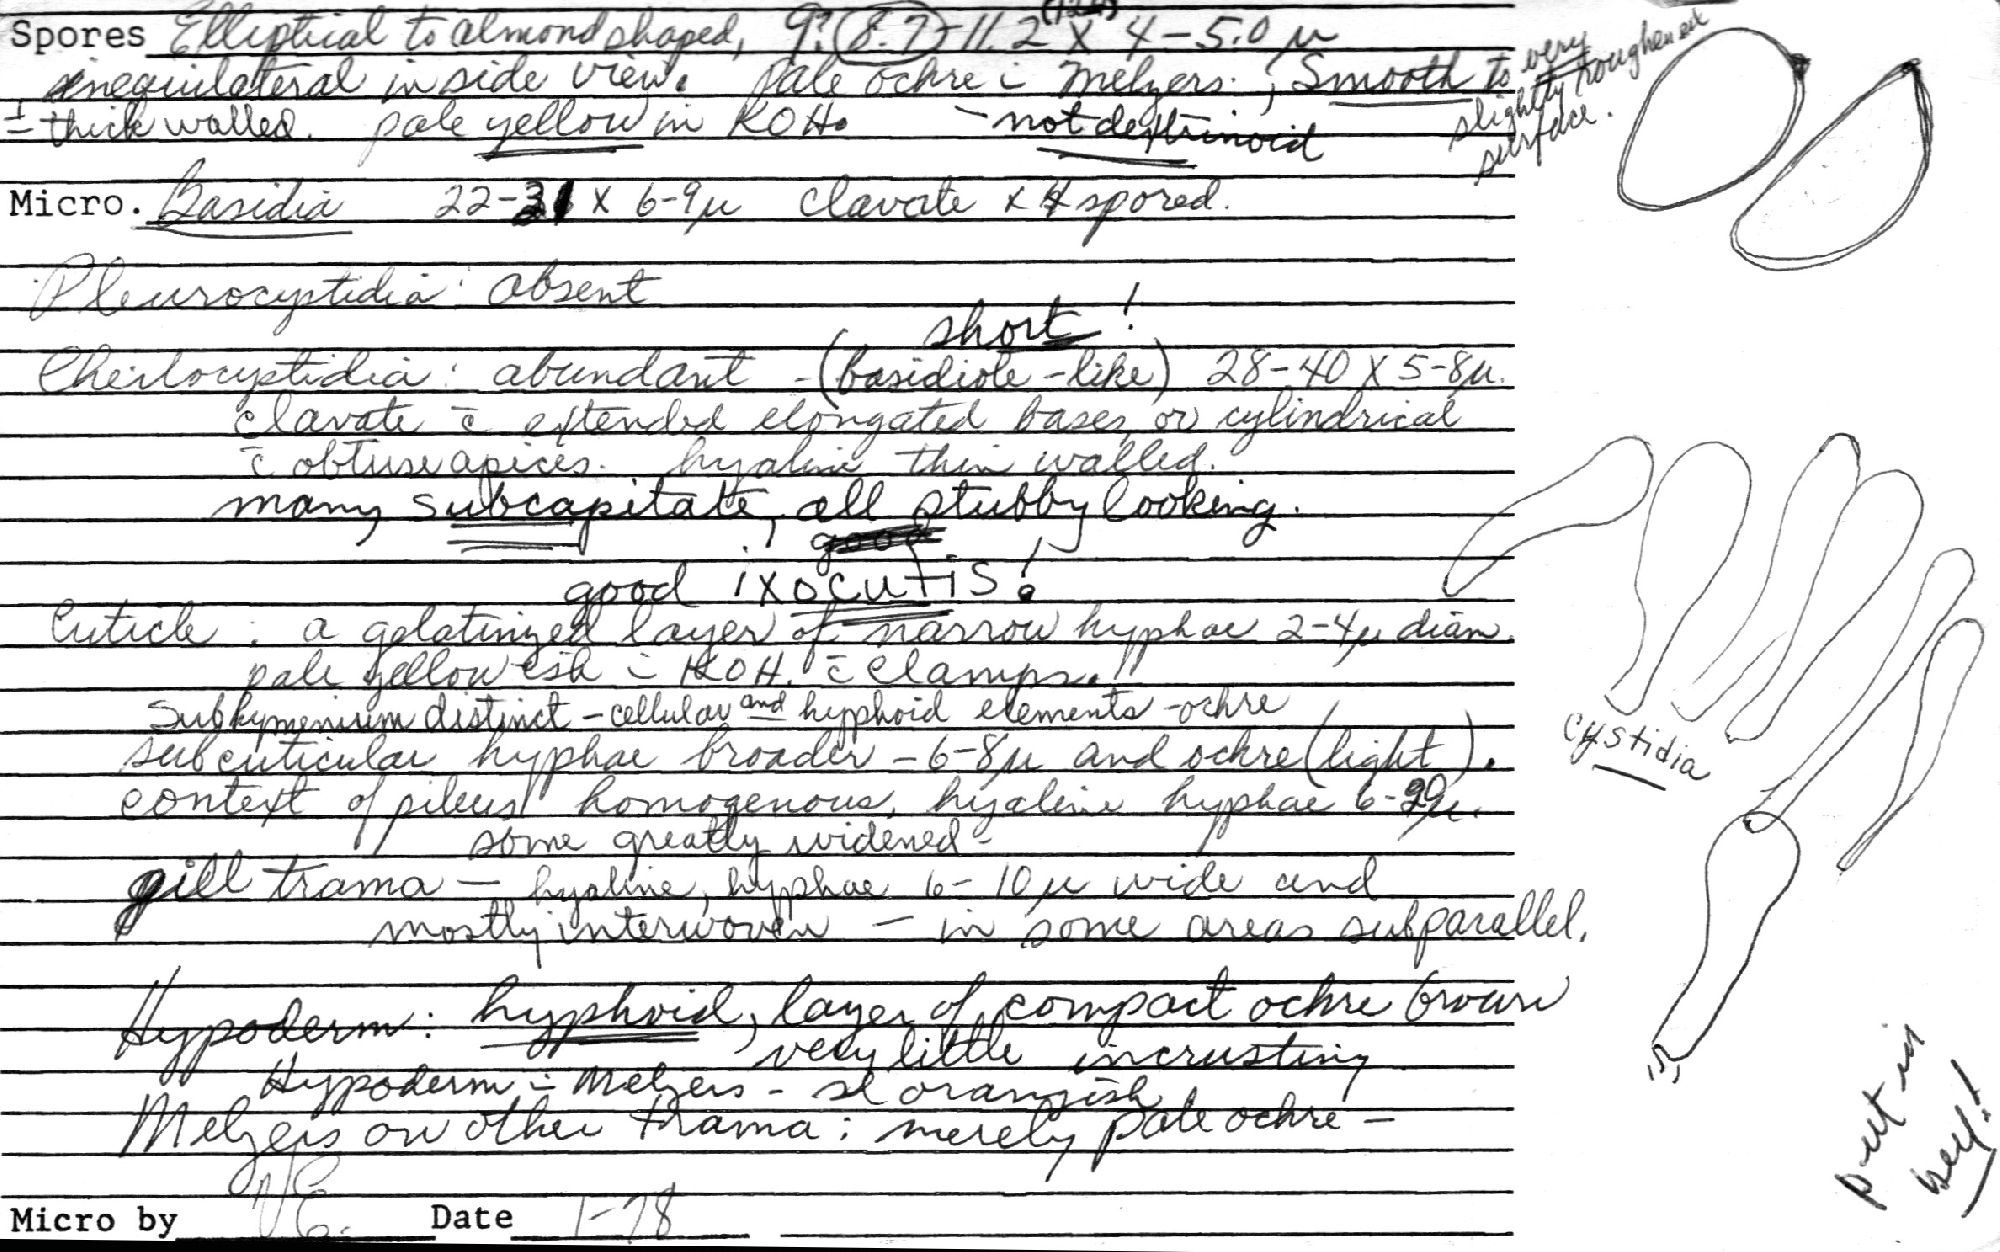 Spores Elliptical to almond shaped, 9? (8.7)-11.2 x 4-5.0 µ
inequilateral in side view. pale ochre c̄ Melzers; Smooth to very slightly roughened surface.
± thick walled. pale yellow in KOH. - not dextrinoid
Micro. Basidia 22-31 x 6-9µ clavate x 4 spored.
Pleurocystidia: absent
short!
Cheilocystidia: abundant - (basidiole-like) 28-40 X 5-8µ.
clavate c̄ extended elongated bases, or cylindrical
c̄ obtuse apices. hyaline thin walled.
many subcapitate, all stubby looking.
good ixocutis!
Cuticle: a gelatinized layer of narrow hyphae 2-4µ diam.
pale yellowish c̄ KOH. c̄ clamps.
Subhymenium distinct - cellular and hyphoid elements - ochre
subcuticular hyphae broader - 6-8µ and ochre (light).
context of pileus homogenous, hyaline hyphae 6-20µ.
some greatly widened -
gill trama - hyaline, hyphae 6-10µ wide and
mostly interwoven - in some areas subparallel.
Hypoderm: hyphoid, layer of compact ochre brown
very little incrusting
Hypoderm c̄ Melzers - sl orangish
Melzers on other trama: merely pale ochre -
Micro by V.E. Date 1-78
cystidia
put in key!